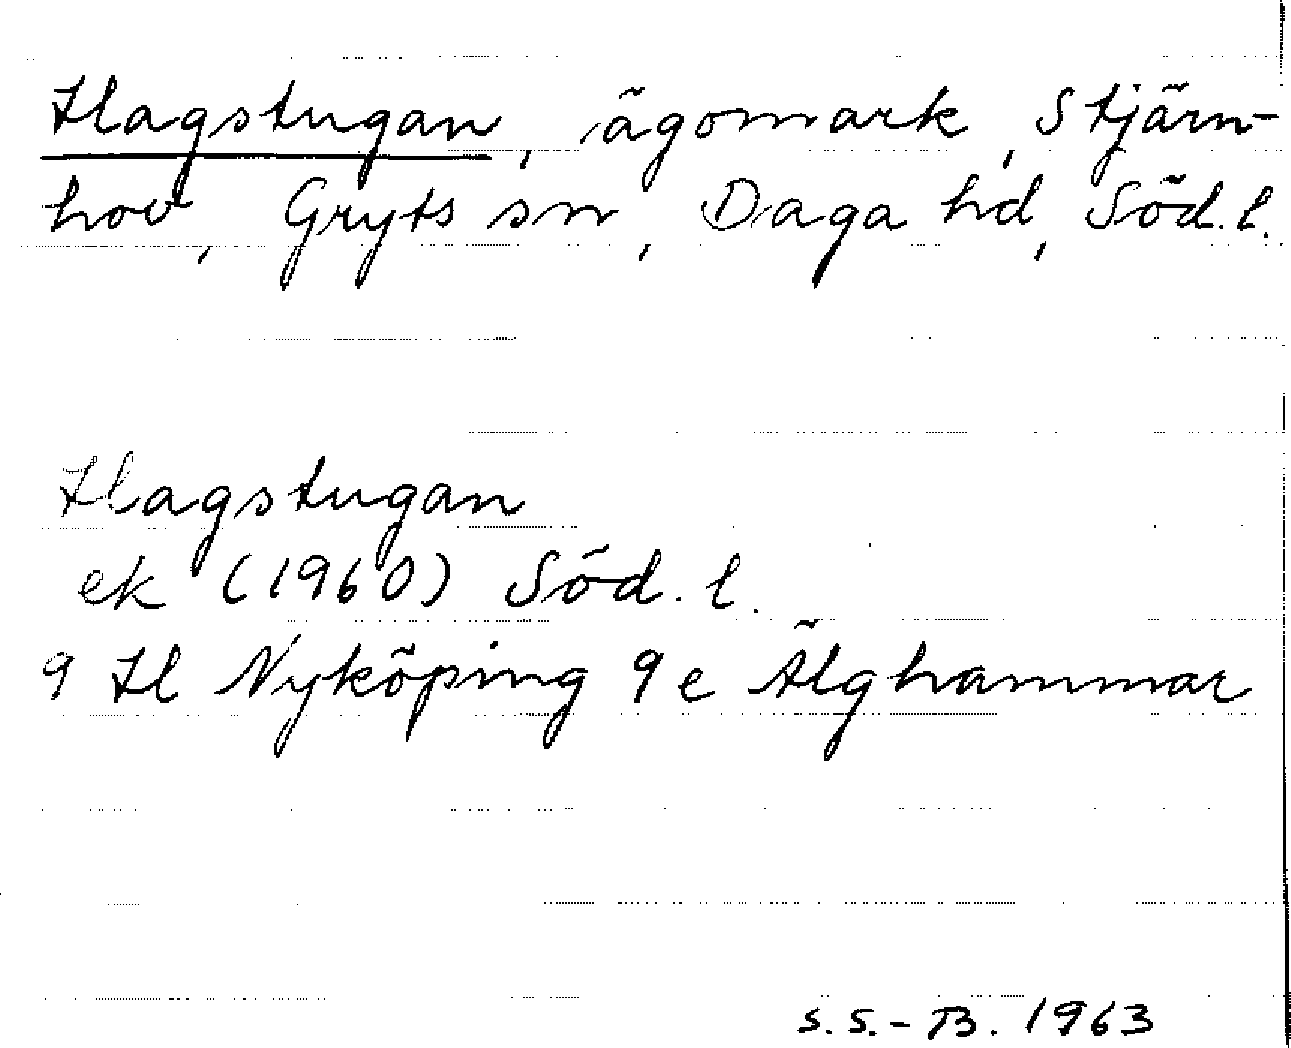 Hagstugan, ägomark, Stjärn-
hov, Gryts sn, Daga hd, Söd. l.
Hagstugan
ek (1960) Söd. l.
9 H Nyköping 9 e Älghammar
S. S. - B. 1963